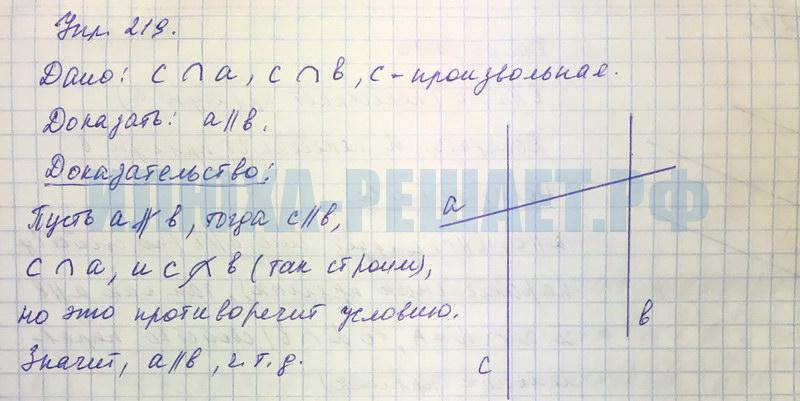 Упр. 219.
Дано: c ∩ a, c ∩ b, c - произвольная.
Доказать: a ∥ b.
Доказательство:
Пусть a ∦ b, тогда c ∥ b,
c ∩ a, и c ∩̸ b (так строим),
но это противоречит условию.
Значит, a ∥ b, ч.т.д.
a
b
c
ИОНКА-РЕШАЕТ.РФ